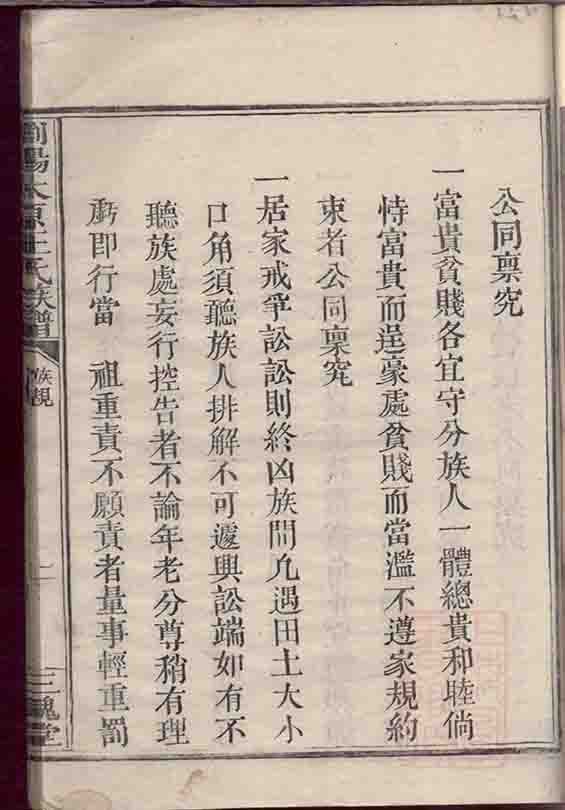 公同禀究
一富貴貧賤各宜守分族人一體總貴和睦倘
恃富貴而逞豪處貧賤而當濫不遵家規約
束者公同禀究
一居家戒爭訟訟則終凶族間凢遇田土大小
口角須聽族人排解不可遽興訟端如有不
聽族處妄行控告者不論年老分尊稍有理
虧即行當 祖重責不願責者量事輕重罰
瀏陽太原王氏族譜
族規
三槐堂